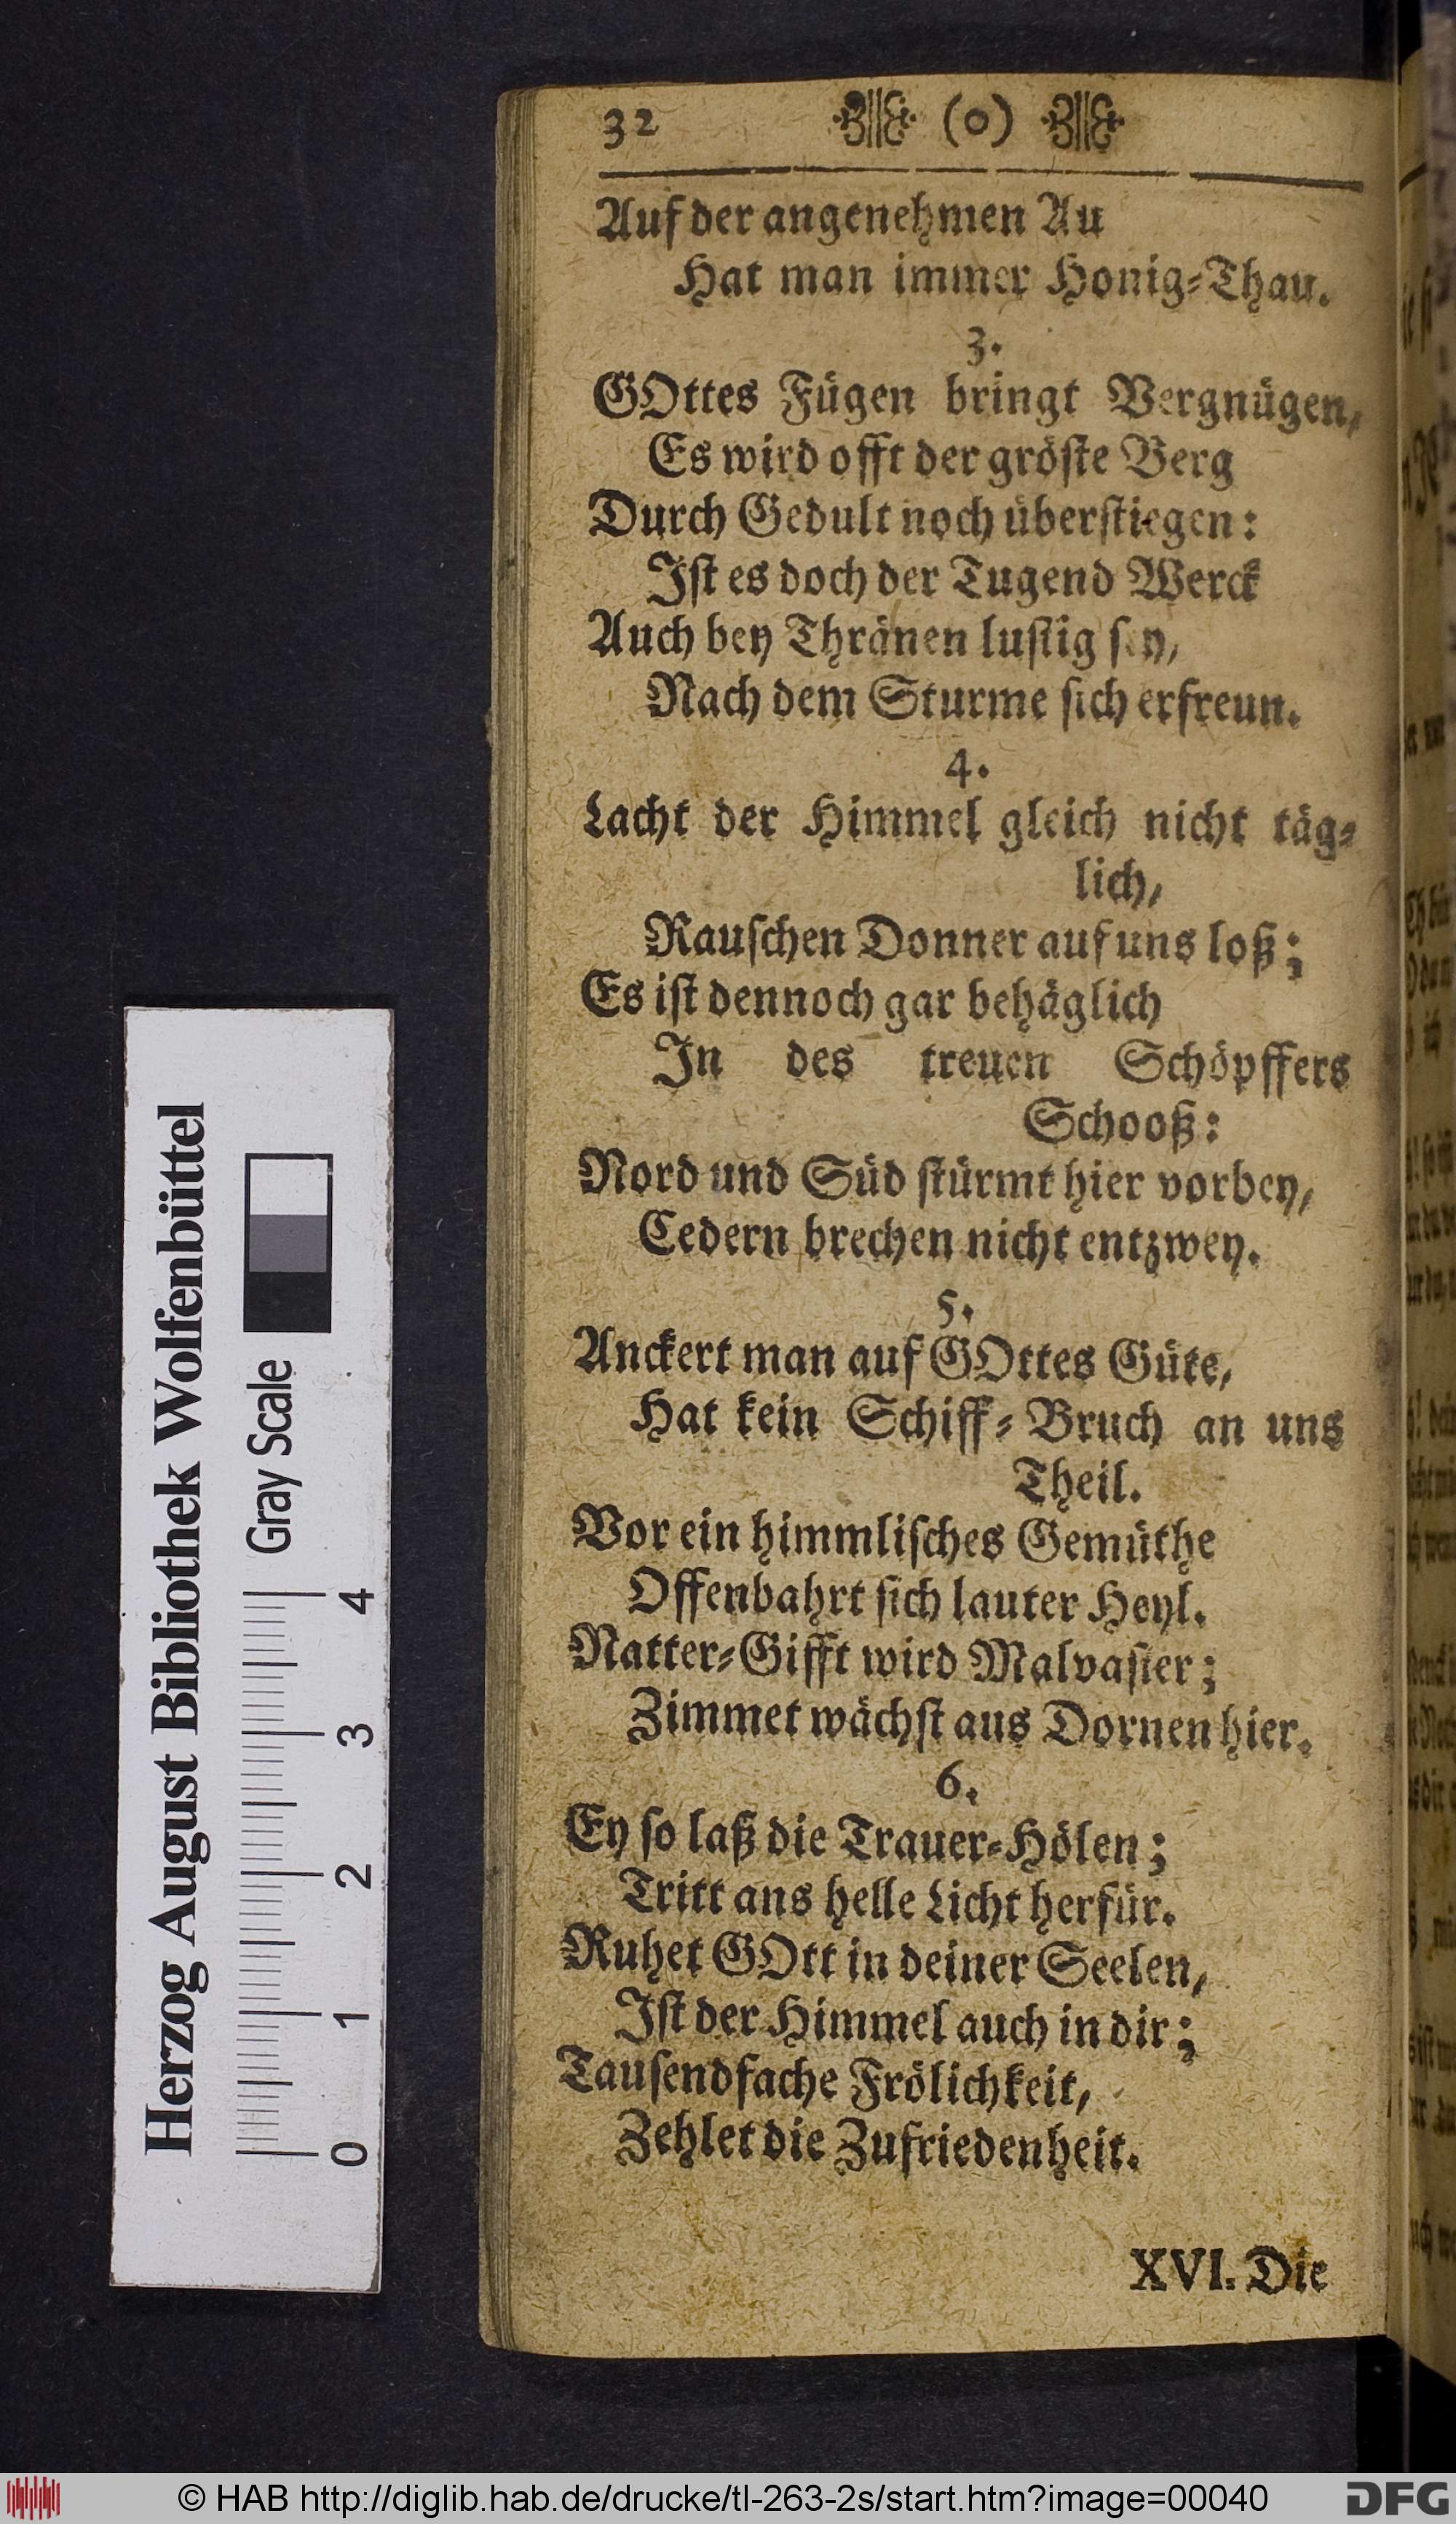 32 (o)
Auf der angenehmen Au
Hat man immer Honig-Thau.
3.
GOttes Fügen bringt Vergnügen,
Es wird offt der gröste Berg
Durch Gedult noch überstiegen:
Ist es doch der Tugend Werck
Auch bey Thränen lustig sey,
Nach dem Sturme sich erfreun.
4.
Lacht der Himmel gleich nicht täg-
lich,
Rauschen Donner auf uns loß;
Es ist dennoch gar behäglich
In des treuen Schöpffers
Schooß:
Nord und Süd stürmt hier vorbey,
Cedern brechen nicht entzwey.
5.
Anckert man auf GOttes Güte,
Hat kein Schiff-Bruch an uns
Theil.
Vor ein himmlisches Gemüthe
Offenbahrt sich lauter Heyl.
Natter-Gifft wird Malvasier;
Zimmet wächst aus Dornen hier.
6.
Ey so laß die Trauer-Hölen;
Tritt ans helle Licht herfür.
Ruhet GOtt in deiner Seelen,
Ist der Himmel auch in dir;
Tausendfache Frölichkeit,
Zehlet die Zufriedenheit.
XVI. Die
Herzog August Bibliothek Wolfenbüttel
Gray Scale
0 1 2 3 4
© HAB http://diglib.hab.de/drucke/tl-263-2s/start.htm?image=00040
DFG